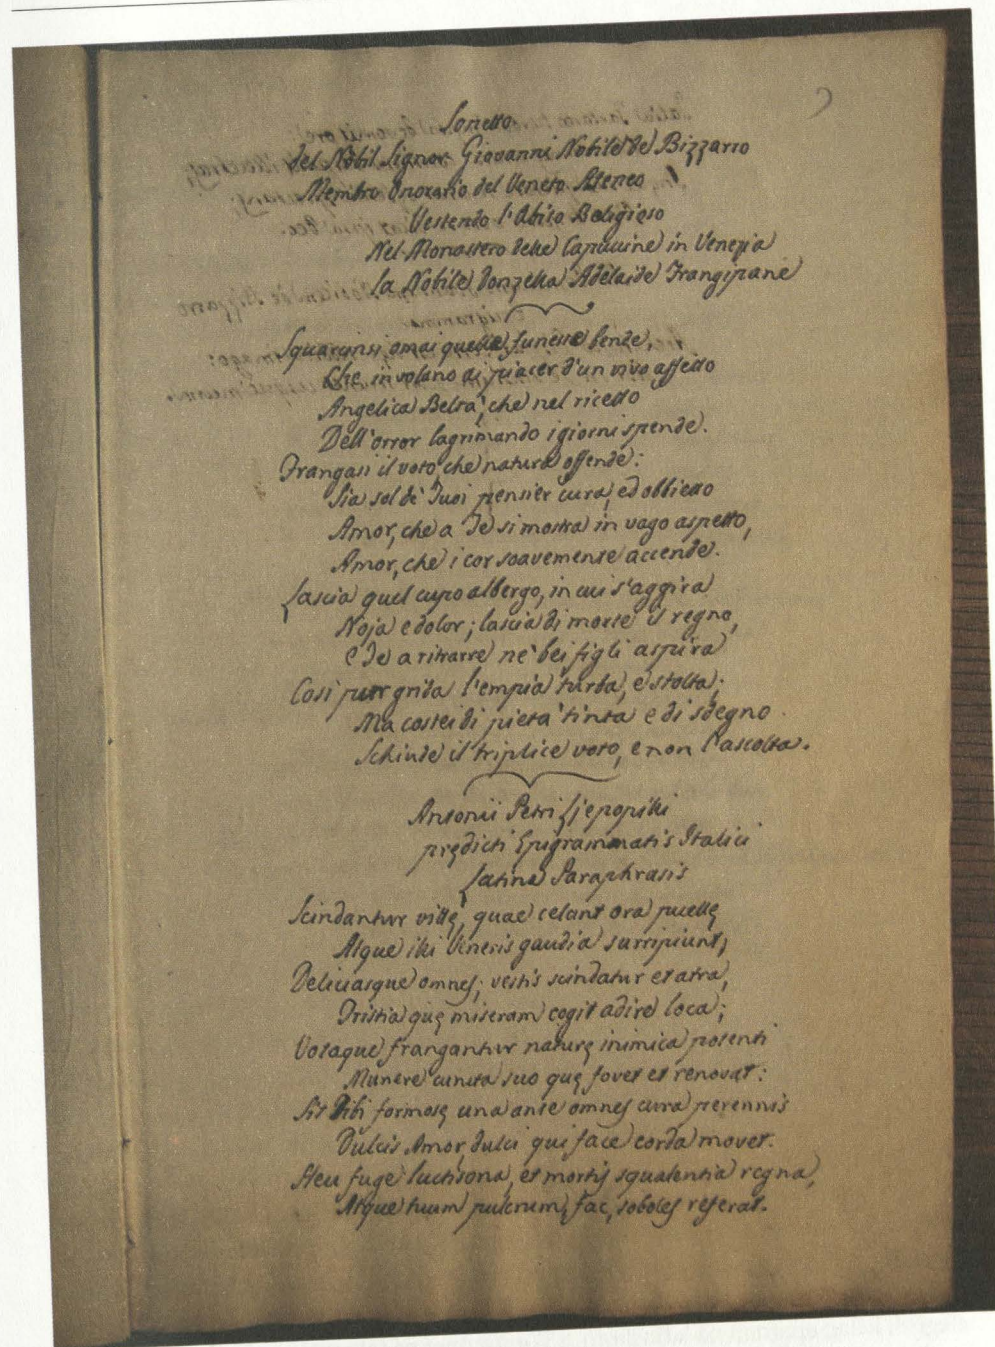 Sonetto
Del Nobil Signor Giovanni Nobile De Bizzarro
Membro Onorario del Veneto Ateneo
Vestendo l'Abito Religioso
Nel Monastero delle Capucine in Venezia
La Nobile Donzella Adelaide Frangipane
Squarcinsi omai queste funeste bende,
Che involano ai piacer d'un vivo affetto
Angelica Beltà, che nel ricetto
Dell'orror lagrimando i giorni spende.
Frangasi il voto, che natura offende:
Sia sol de' Tuoi pensier cura, ed obbietto
Amor, che a Te si mostra in vago aspetto,
Amor, che i cor soavemente accende.
Lascia quel cupo albergo, in cui s'aggira
Noja e dolor; lascia di morte il regno,
E Te a ritrarre ne' bei figli aspira
Così pur grida l'empia turba, e stolta;
Ma costei di pietà tinta e di sdegno
Schiude il triplice voto, e non l'ascolta.
Antonii Petri Ljepopilli
prędicti Epigrammatis Italici
Latina Paraphrasis
Scindantur vittę, quae celant ora puellę
Atque illi Veneris gaudia surripiunt,
Deliciasque omnes; vestis scindatur et atra,
Tristia quę miseram cogit adire loca;
Votaque frangantur naturę inimica potenti
Munere cuncta suo quę fovet et renovat:
Sit Tibi formosę una ante omnes cura perennis
Dulcis Amor, dulci qui face corda movet.
Heu fuge luctisona, et mortis squalentia regna,
Atque tuum pulcrum, fac, soboles referat.